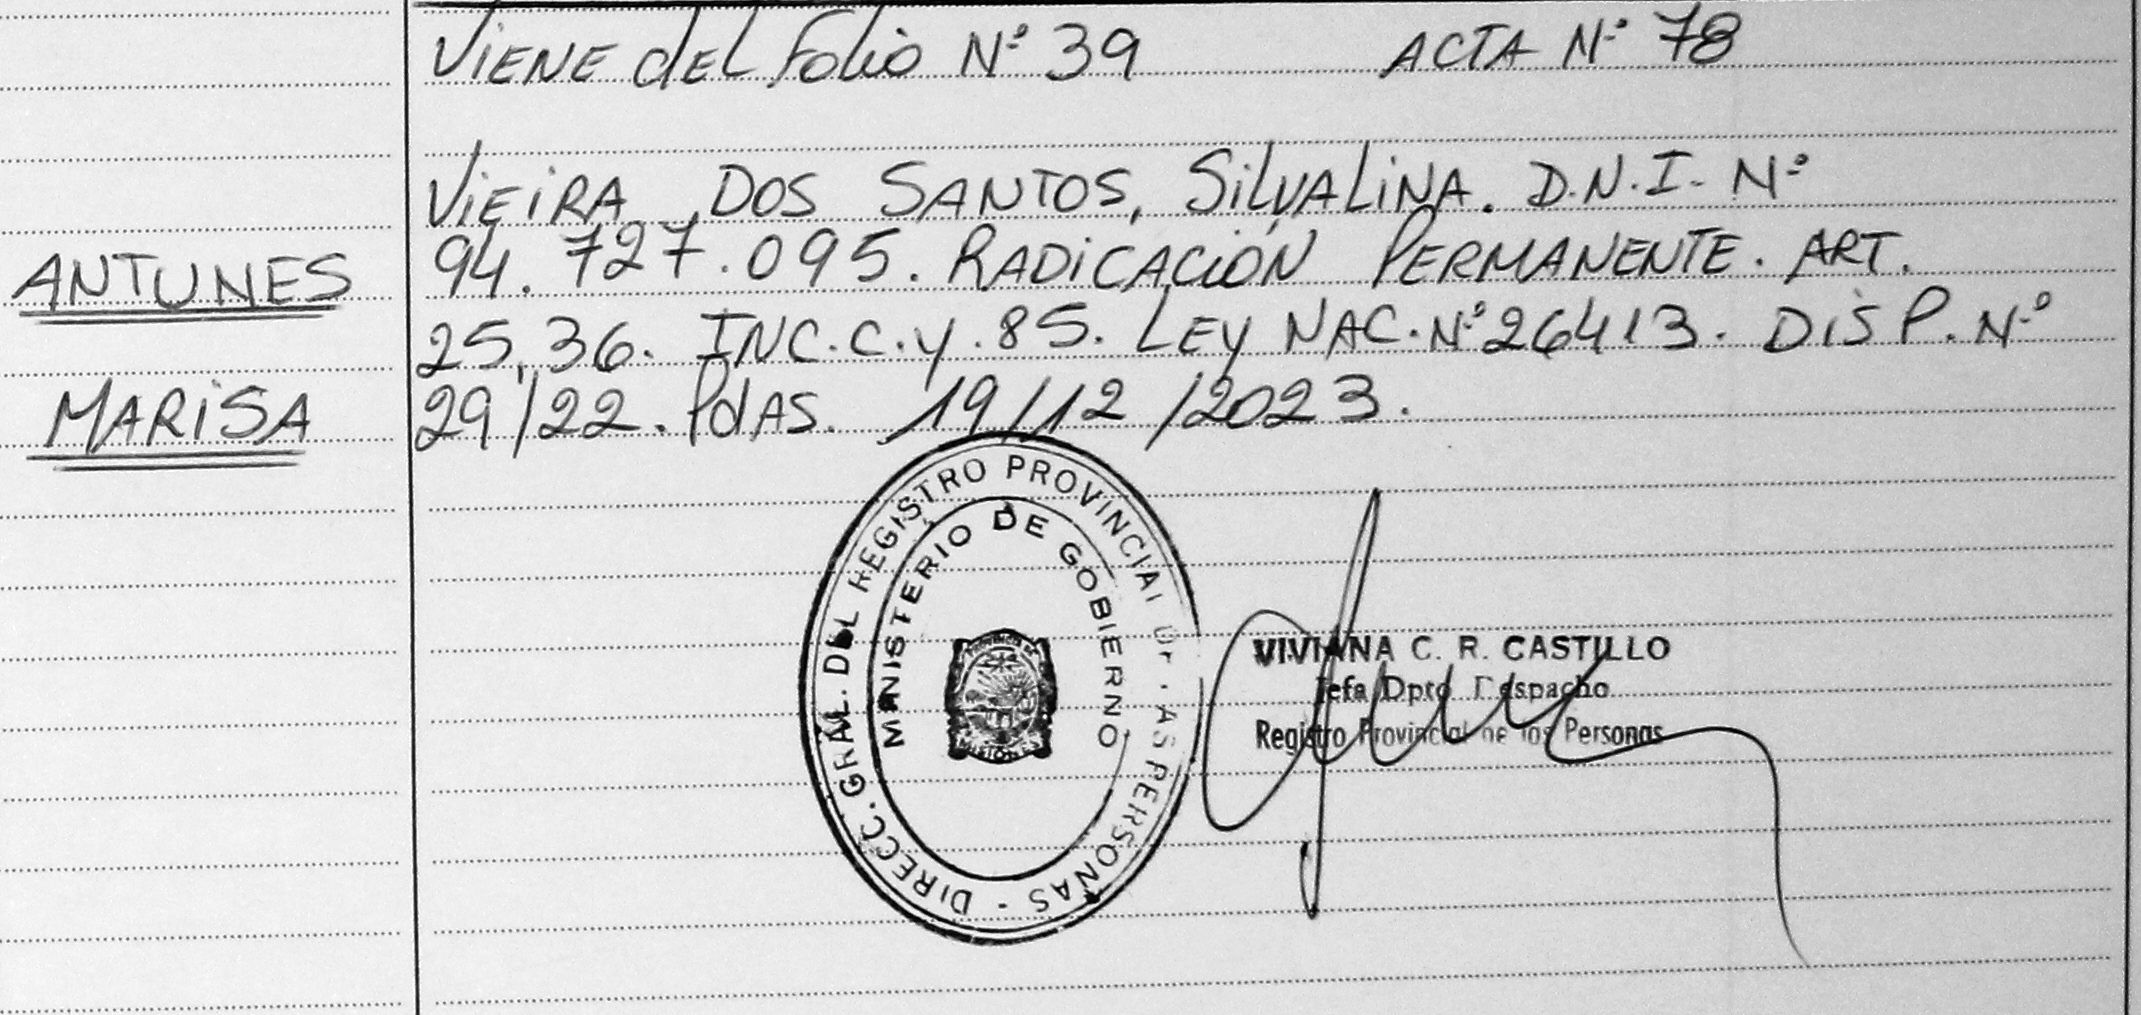 ViENE dEL Folio Nº 39 ACTA Nº 78
ViEiRA DOS SANTOS, SiLVALiNA. D.N.I. Nº
94.727.095. RADiCACiÓN PERMANENTE. ART.
25,36. INC.C.y.85. LEy NAC.Nº26413. DiSP. Nº
29/22. PdAS. 19/12/2023.
ANTUNES
MARiSA
DIRECC. GRAL. DEL REGISTRO PROVINCIAL DE LAS PERSONAS -
MINISTERIO DE GOBIERNO
MISIONES
VIVIANA C. R. CASTILLO
Jefa Dpto. Despacho
Registro Provincial de los Personas